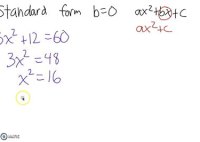 Standard form b=0 ax²+bx+c
ax²+c
3x²+12=60
3x²=48
x²=16